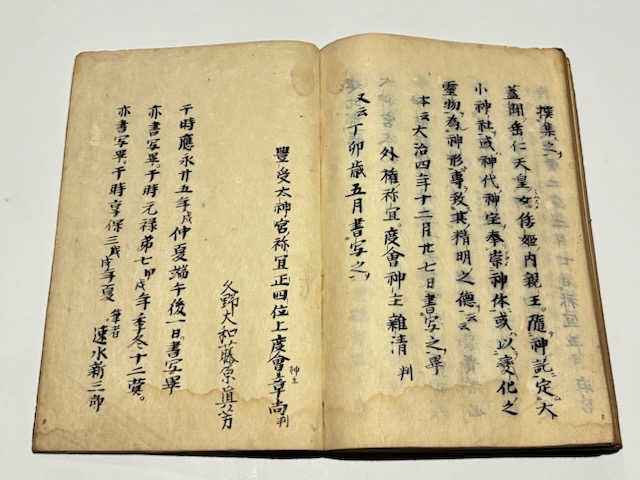 撰集之
蓋聞垂仁天皇女倭姫内親王。隨神託定大
小神社或神代神宝奉崇神体或以変化之
靈物為神形専致其精明之德云云
本云大治四年十二月廿七日書写之畢
大神宮外権祢宜度會神主雅清 判
又云丁卯歳五月書写之
豐受太神宮祢宜正四位上度會神主章尚判
久野大和藤原眞
于時應永廿五年戊戌仲夏端午後一日書写畢
亦書写畢于時元禄第七甲戌年季冬十二蓂。
亦書写畢于時享保三戊戌年夏 筆者 速水新三郎